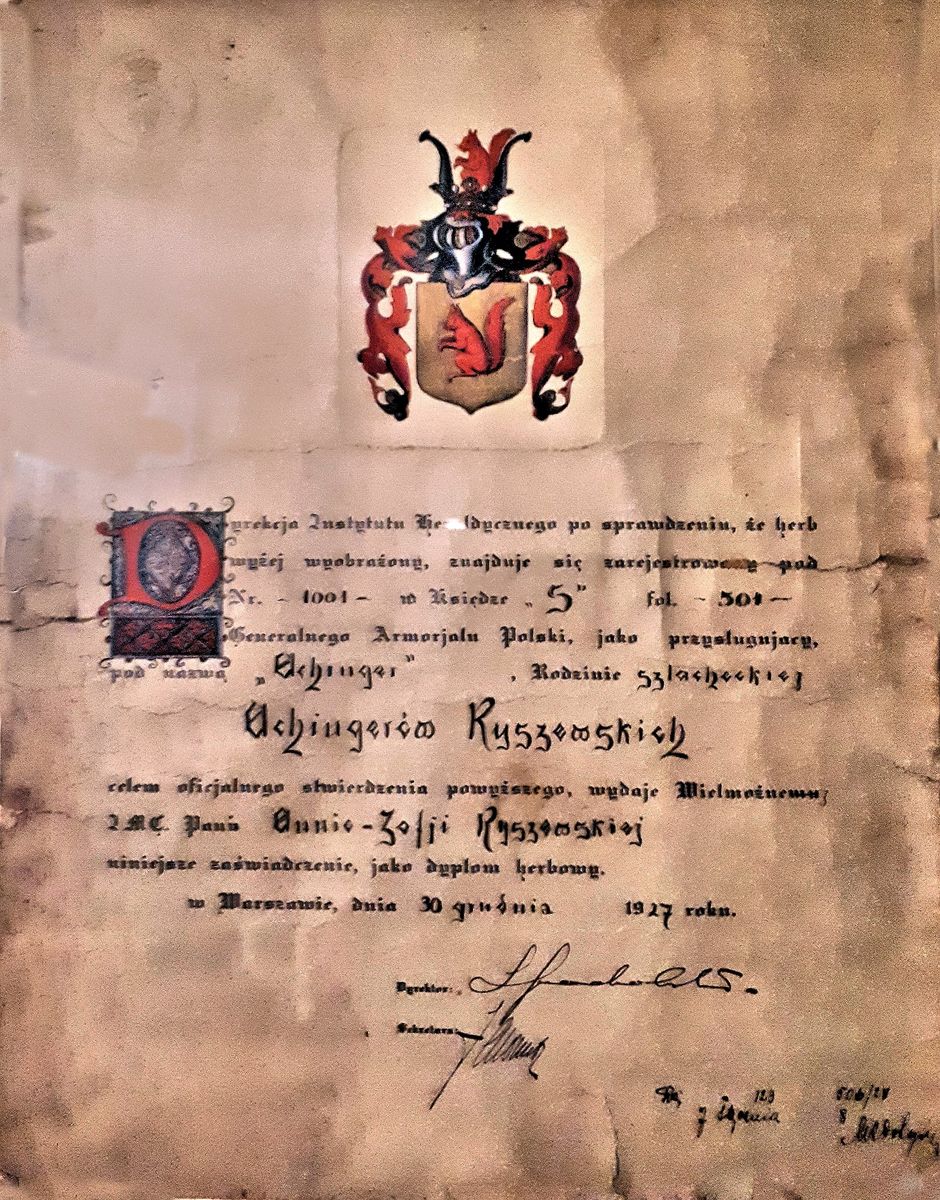 Dyrekcja Instytutu Heraldycznego po sprawdzeniu, że herb
wyżej wyobrażony, znajduje się zarejestrowany pod
Nr. - 1001 - w Księdze „S” fol. - 501 -
Generalnego Armorjalu Polski, jako przysługujący,
pod nazwą „Achinger”, Rodzinie szlacheckiej
Achingerów Ryszewskich
celem oficjalnego stwierdzenia powyższego, wydaje Wielmożnemu
JMC. Panu Annie-Zofji Ryszewskiej
niniejsze zaświadczenie, jako dyplom herbowy.
w Warszawie, dnia 30 grudnia 1927 roku.
Dyrektor:
Sekretarz:
123
7
8